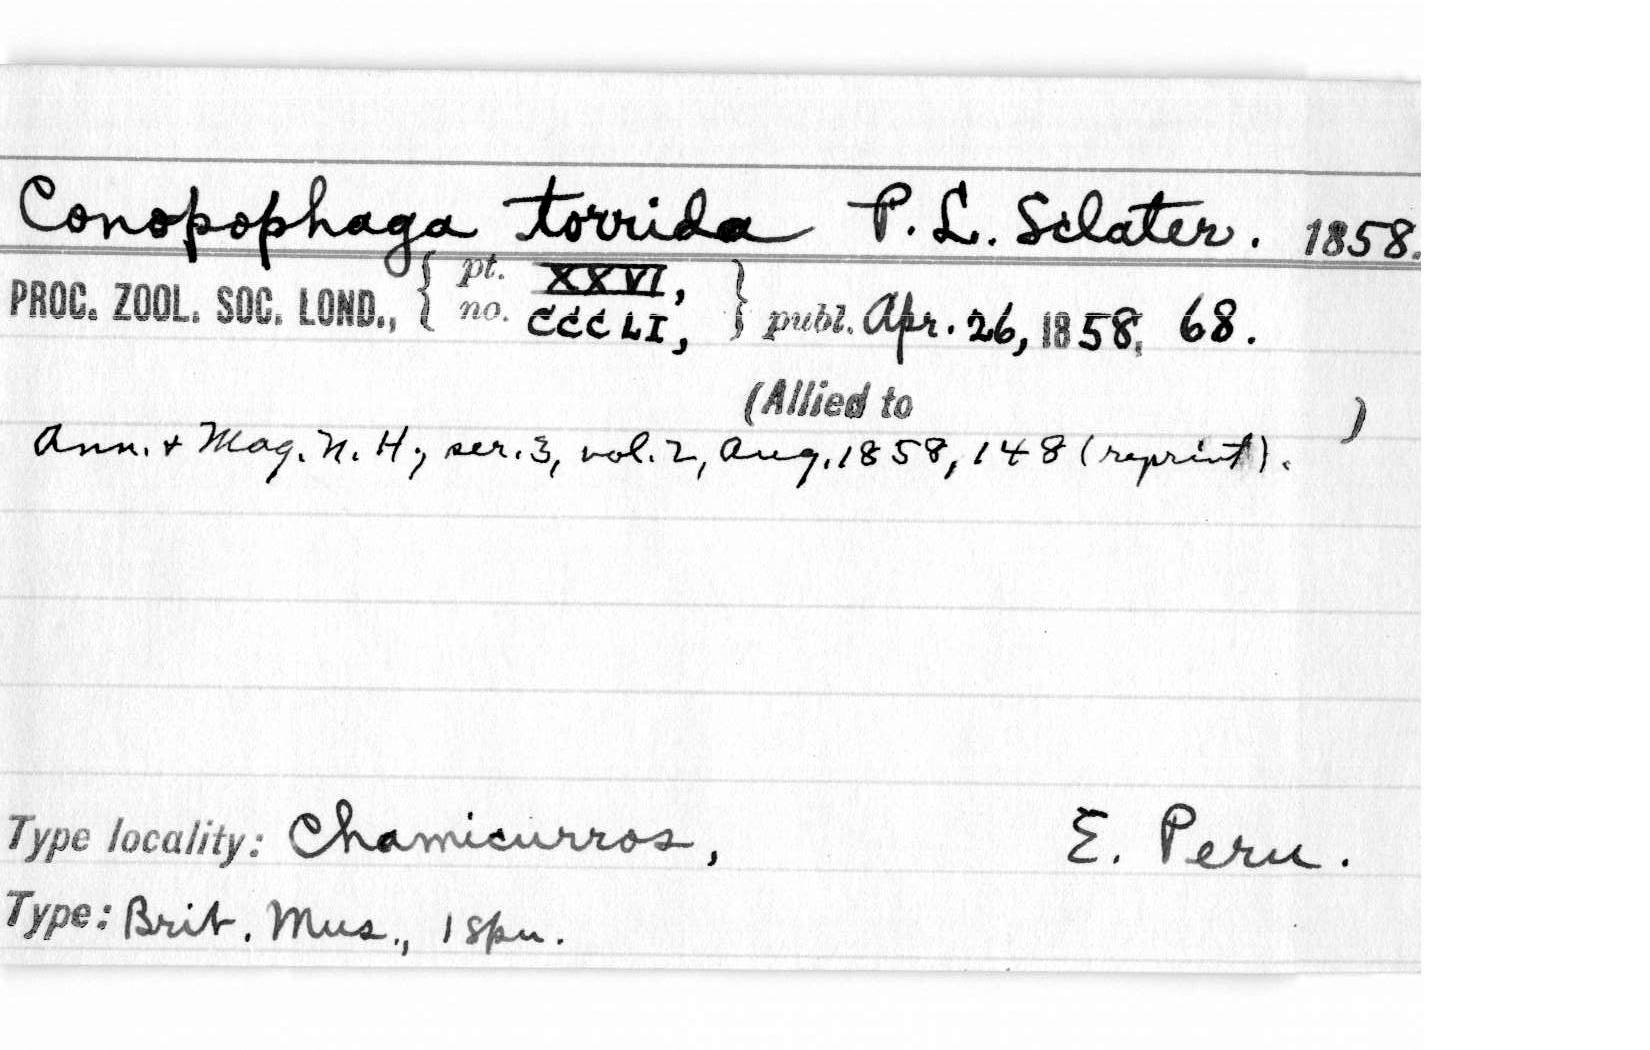 Conopophaga torrida P. L. Sclater. 1858.
PROC. ZOOL. SOC. LOND., { pt. XXVI, no. CCCLI, } publ. Apr. 26, 1858, 68.
(Allied to )
Ann. + Mag. N. H., ser. 3, vol. 2, Aug. 1858, 148 (reprint).
Type locality: Chamicurros, E. Peru.
Type: Brit. Mus., 1 spn.